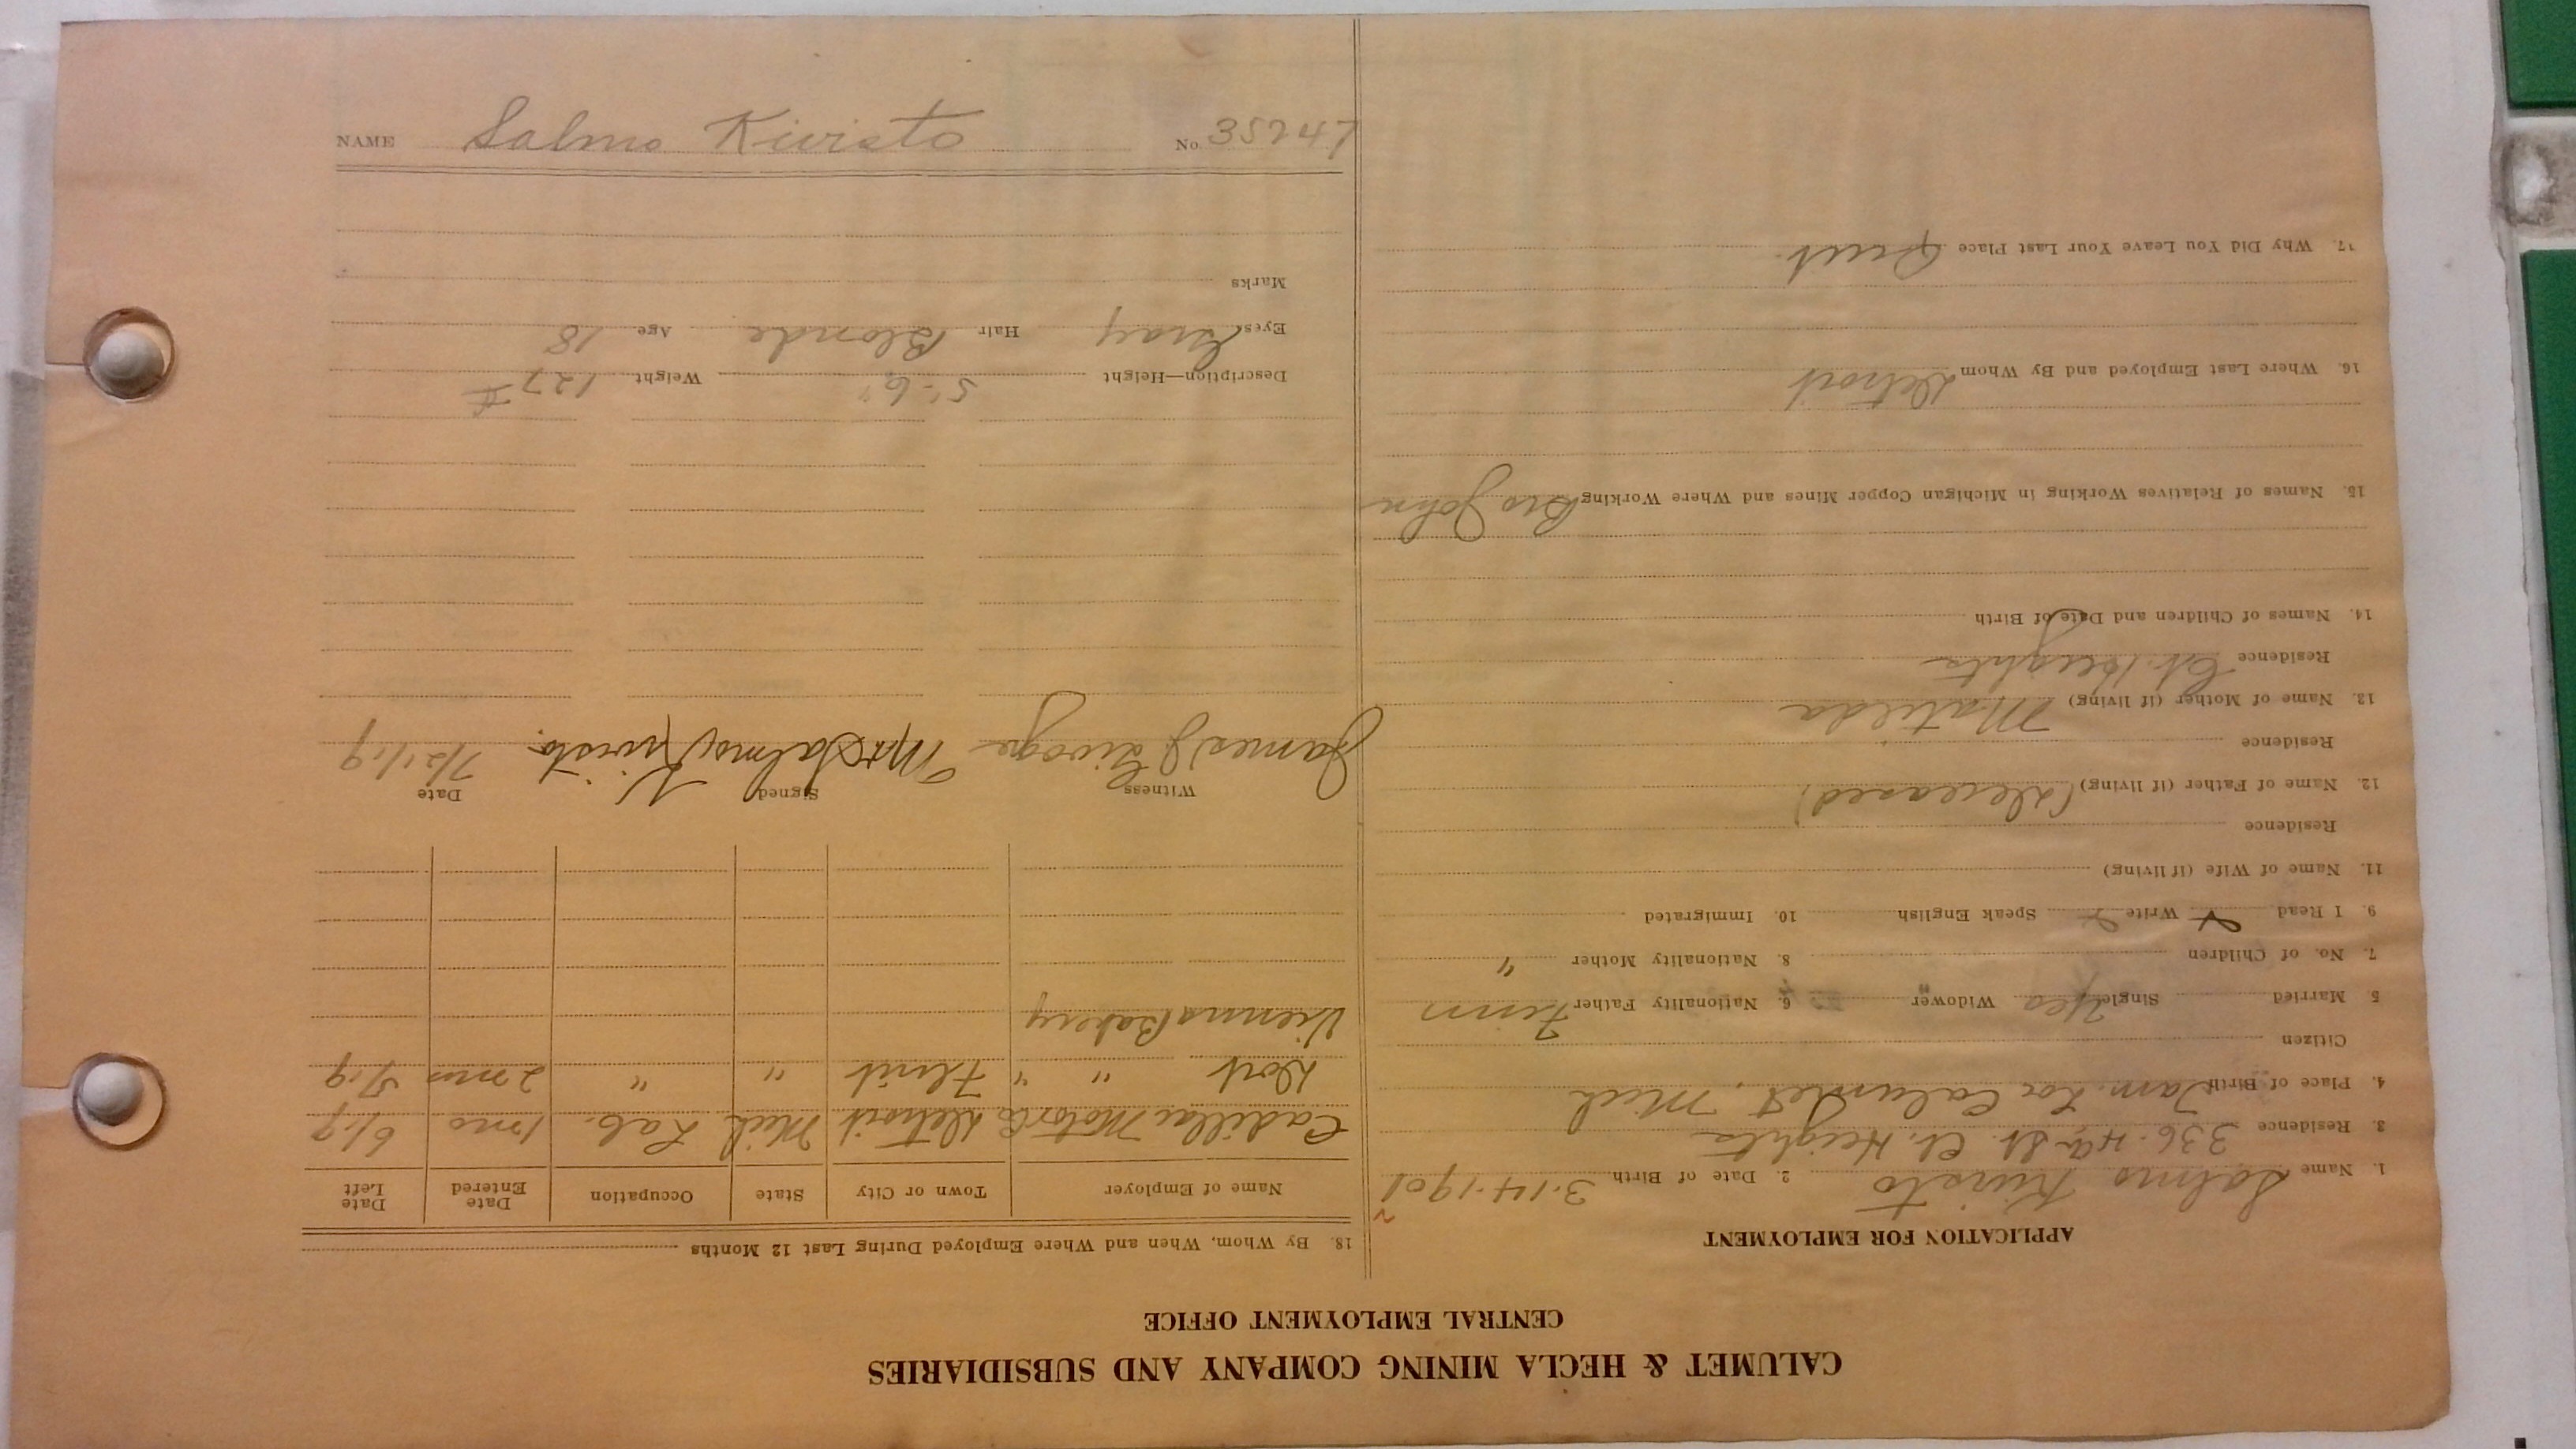 CALUMET & HECLA MINING COMPANY AND SUBSIDIARIES
CENTRAL EMPLOYMENT OFFICE
APPLICATION FOR EMPLOYMENT
1. Name Salmo Kivisto 2. Date of Birth 3-14-1901
3. Residence 336-4th St. Cl. Heights
4. Place of Birth Tam. Loc Calumet, Mich
Citizen
5 Married Single Yes Widower 6. Nationality Father Finn
7. No. of Children 8. Nationality Mother "
9. I Read Write Speak English 10. Immigrated
11. Name of Wife (if living)
Residence
12. Name of Father (if living) (deceased)
Residence
13. Name of Mother (if living) Matilda
Residence Cl. Heights
14. Names of Children and Date of Birth
15. Names of Relatives Working in Michigan Copper Mines and Where Working Bro John
16. Where Last Employed and By Whom Detroit
17. Why Did You Leave Your Last Place Quit.
18. By Whom, When and Where Employed During Last 12 Months
Name of Employer Town or City State Occupation Date Entered Date Left
Cadillac Motor Co Detroit Mich Lab. 1 mo 6/19
Dort " " Flint " " 2 mos 5/19
Vienna Bakery
Witness Signed Date
James J Mr Salmo Kivisto. 7/21/19
Description—Height 5'-6" Weight 127 #
Eyes Gray Hair Blonde Age 18
Marks
NAME Salmo Kivisto No. 35247